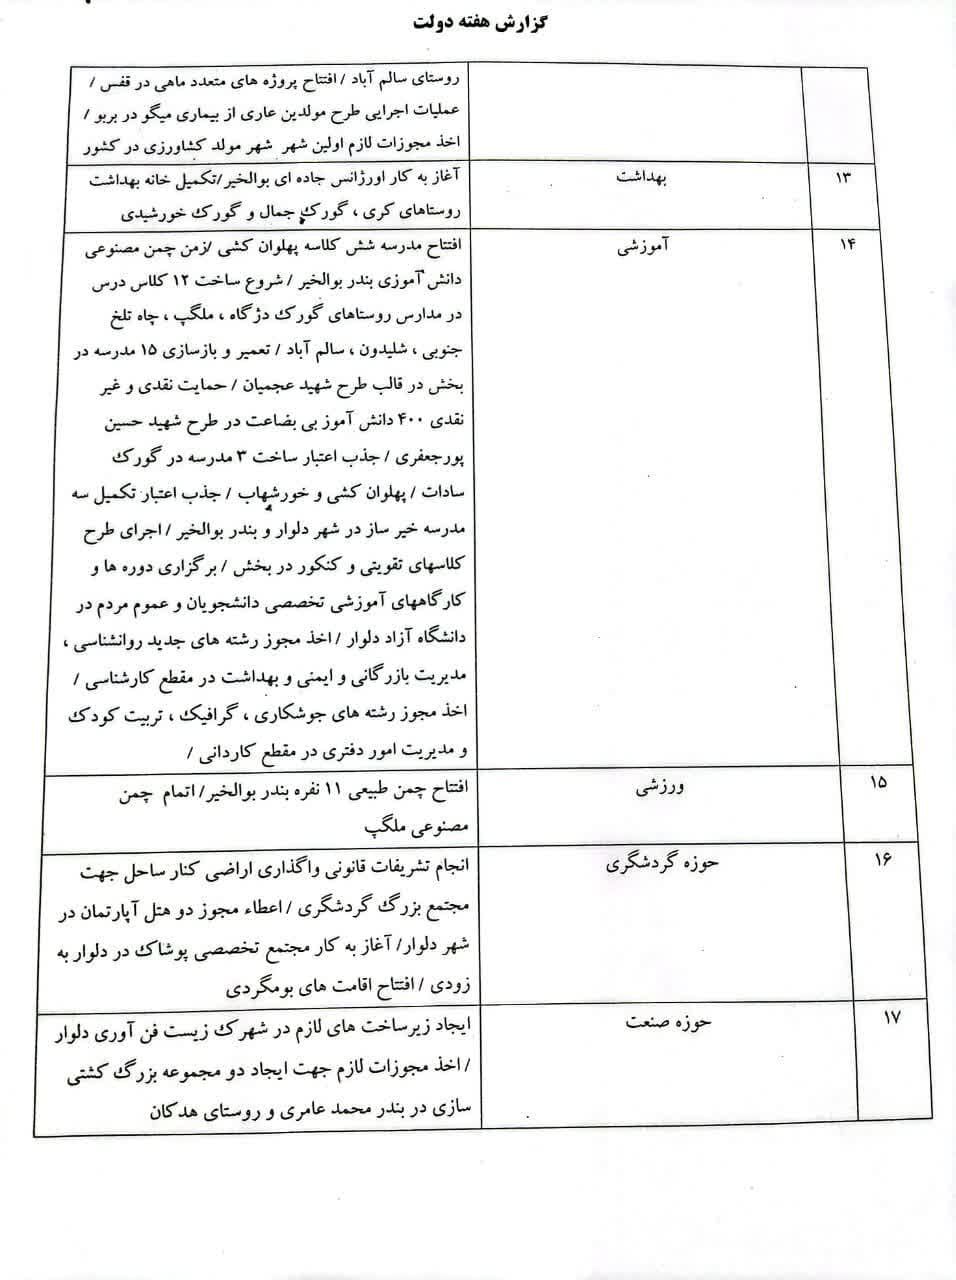 گزارش هفته دولت
روستای سالم آباد / افتتاح پروژه های متعدد ماهی در قفس /
عملیات اجرایی طرح مولدین عاری از بیماری میگو در بربو /
اخذ مجوزات لازم اولین شهر شهر مولد کشاورزی در کشور
۱۳
بهداشت
آغاز به کار اورژانس جاده ای بوالخیر/تکمیل خانه بهداشت
روستاهای کری ، گورک جمال و گورک خورشیدی
۱۴
آموزشی
افتتاح مدرسه شش کلاسه پهلوان کشی /زمن چمن مصنوعی
دانش آموزی بندر بوالخیر / شروع ساخت ۱۲ کلاس درس
در مدارس روستاهای گورک دژگاه ، ملگپ ، چاه تلخ
جنوبی ، شلیدون ، سالم آباد / تعمیر و بازسازی ۱۵ مدرسه در
بخش در قالب طرح شهید عجمیان / حمایت نقدی و غیر
نقدی ۴۰۰ دانش آموز بی بضاعت در طرح شهید حسین
پورجعفری / جذب اعتبار ساخت ۳ مدرسه در گورک
سادات / پهلوان کشی و خورشهاب / جذب اعتبار تکمیل سه
مدرسه خیر ساز در شهر دلوار و بندر بوالخیر / اجرای طرح
کلاسهای تقویتی و کنکور در بخش / برگزاری دوره ها و
کارگاههای آموزشی تخصصی دانشجویان و عموم مردم در
دانشگاه آزاد دلوار / اخذ مجوز رشته های جدید روانشناسی ،
مدیریت بازرگانی و ایمنی و بهداشت در مقطع کارشناسی /
اخذ مجوز رشته های جوشکاری ، گرافیک ، تربیت کودک
و مدیریت امور دفتری در مقطع کاردانی /
۱۵
ورزشی
افتتاح چمن طبیعی ۱۱ نفره بندر بوالخیر/ اتمام چمن
مصنوعی ملگپ
۱۶
حوزه گردشگری
انجام تشریفات قانونی واگذاری اراضی کنار ساحل جهت
مجتمع بزرگ گردشگری / اعطاء مجوز دو هتل آپارتمان در
شهر دلوار/ آغاز به کار مجتمع تخصصی پوشاک در دلوار به
زودی / افتتاح اقامت های بومگردی
۱۷
حوزه صنعت
ایجاد زیرساخت های لازم در شهرک زیست فن آوری دلوار
/ اخذ مجوزات لازم جهت ایجاد دو مجموعه بزرگ کشتی
سازی در بندر محمد عامری و روستای هدکان